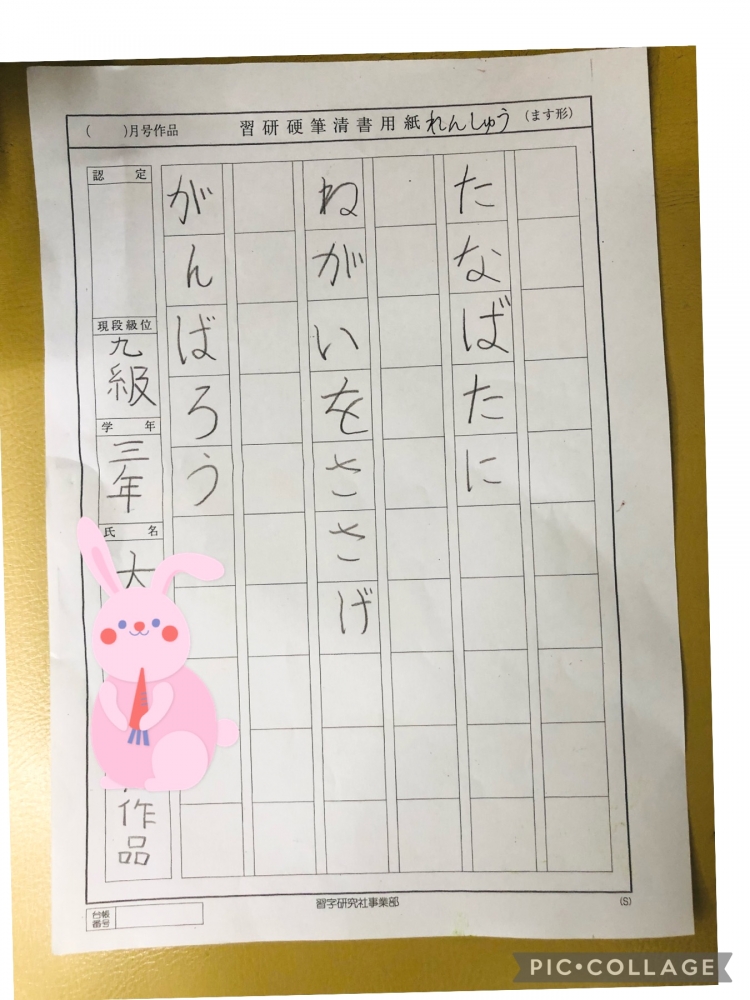 ( )月号作品 習研硬筆清書用紙 れんしゅう (ます形)
たなばたに
ねがいをささげ
がんばろう
認定
現段級位
九級
学年
三年
氏名
大
作品
台帳番号
習字研究社事業部
(S)
PIC•COLLAGE